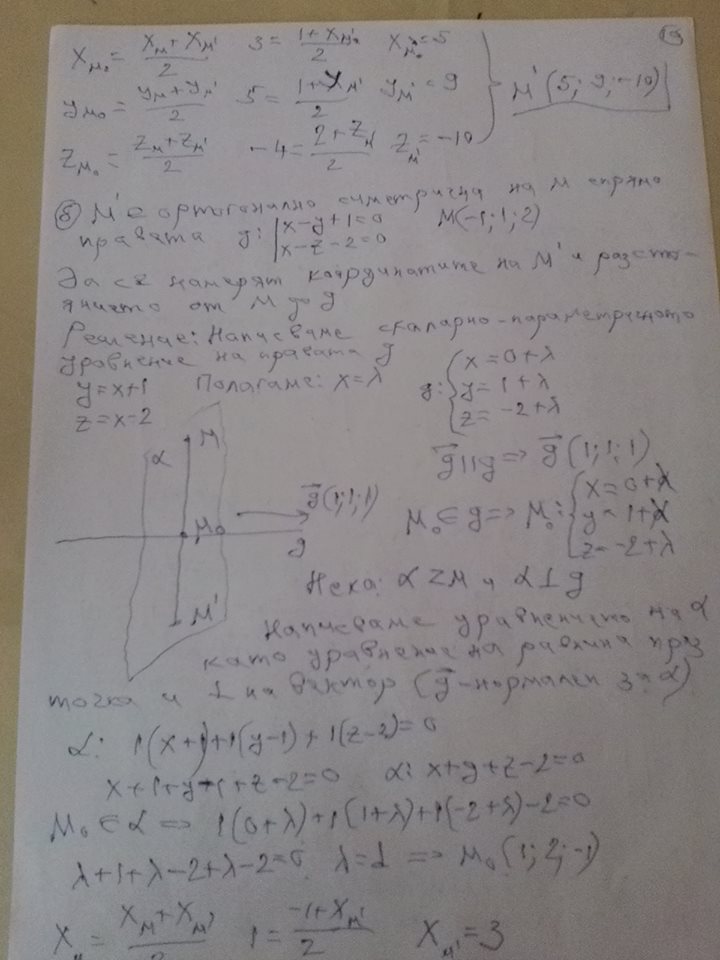 19
x_M₀ = (x_M + x_M')/2   3 = (1 + x_M')/2   x_M' = 5
y_M₀ = (y_M + y_M')/2   5 = (1 + y_M')/2   y_M' = 9   } M'(5; 9; -10)
z_M₀ = (z_M + z_M')/2   -4 = (2 + z_M')/2   z_M' = -10
б) M' е ортогонално симетрична на M спрямо
правата g: | x-y+1=0   M(-1; 1; 2)
| x-z-2=0
Да се намерят координатите на M' и разсто-
янието от M до g
Решение: Написваме скаларно-параметричното
уравнение на правата g
y = x+1   Полагаме: x = λ   g: { x = 0+λ
z = x-2   y = 1+λ
z = -2+λ
α   M   g⃗ ∥ g => g⃗ (1; 1; 1)
g⃗ (1; 1; 1)
M₀   g   M₀ ∈ g => M₀: { x = 0+λ
y = 1+λ
z = -2+λ
M'   Нека: α Z M и α ⊥ g
Написваме уравнението на α
като уравнение на равнина през
точка и ⊥ на вектор (g⃗ - нормален за α)
α: 1(x+1)+1(y-1)+1(z-2)=0
x+1+y-1+z-2=0   α: x+y+z-2=0
M₀ ∈ α => 1(0+λ)+1(1+λ)+1(-2+λ)-2=0
λ+1+λ-2+λ-2=0   λ=1 => M₀(1; 2; -1)
x_M₀ = (x_M + x_M')/2   1 = (-1 + x_M')/2   x_M' = 3